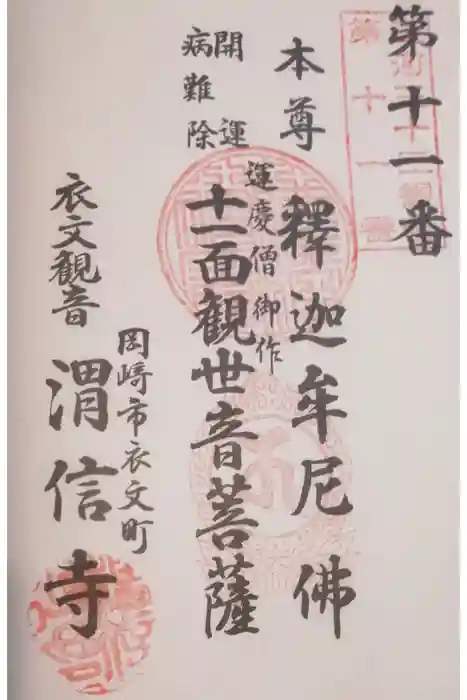 第十一番
第十一番
本尊 釋迦牟尼佛
運慶僧御作
開運
病難除
十一面觀世音菩薩
岡崎市衣文町
衣文觀音 渭信寺